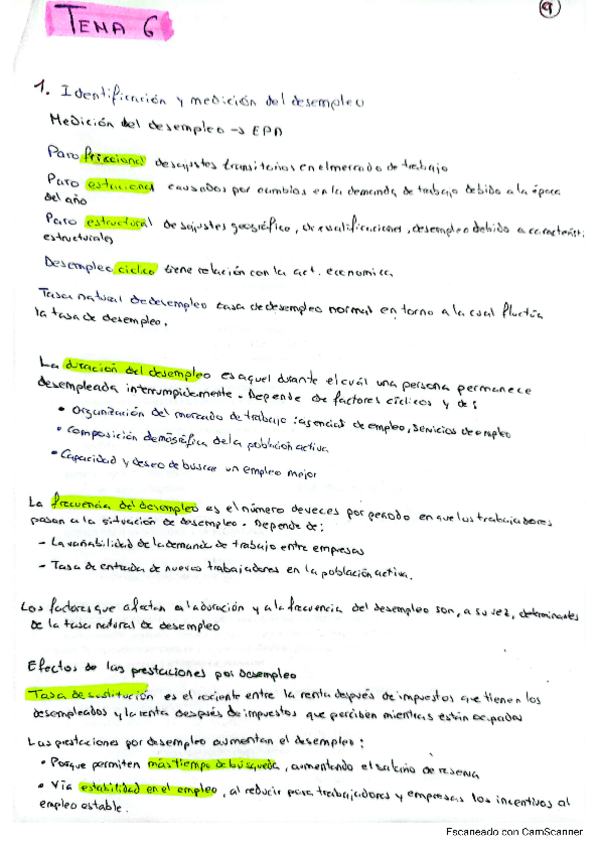 9
TEMA 6
1. Identificación y medición del desempleo
Medición del desempleo → EPA
Paro friccional desajustes transitorios en el mercado de trabajo
Paro estacional causados por cambios en la demanda de trabajo debido a la época
del año
Paro estructural desajustes geográfico, de cualificaciones, desempleo debido a característi
estructurales
Desempleo cíclico tiene relación con la act. economica
Tasa natural de desempleo tasa de desempleo normal en torno a la cual fluctúa
la tasa de desempleo.
La duración del desempleo es aquel durante el cuál una persona permanece
desempleada interrumpidamente. Depende de factores cíclicos y de:
• Organización del mercado de trabajo: agencias de empleo, servicios de empleo
• Composición demográfica de la población activa
• Capacidad y deseo de buscar un empleo mejor
La frecuencia del desempleo es el número de veces por periodo en que los trabajadores
pasan a la situación de desempleo. Depende de:
- La variabilidad de la demanda de trabajo entre empresas
- Tasa de entrada de nuevos trabajadores en la población activa.
Los factores que afectan a la duración y a la frecuencia del desempleo son, a su vez, determinantes
de la tasa natural de desempleo
Efectos de las prestaciones por desempleo
Tasa de sustitución es el cociente entre la renta después de impuestos que tienen los
desempleados y la renta después de impuestos que perciben mientras están ocupados
Las prestaciones por desempleo aumentan el desempleo:
• Porque permiten más tiempo de búsqueda, aumentando el salario de reserva
• Vía estabilidad en el empleo, al reducir para trabajadores y empresas los incentivos al
empleo estable.
Escaneado con CamScanner